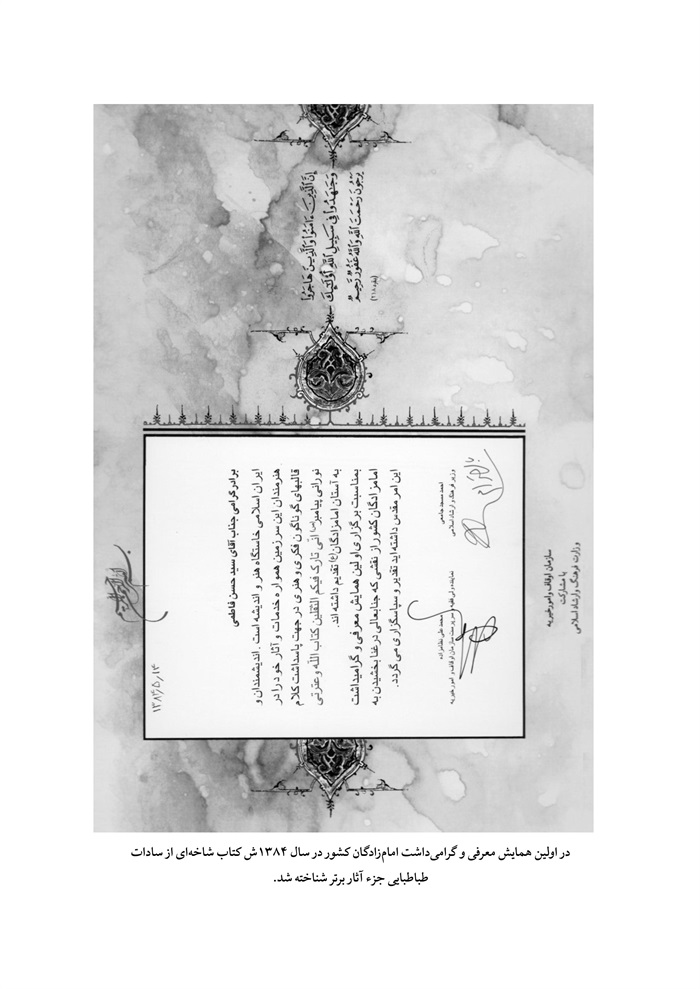 بسم الله الرحمن الرحیم
۱۳۸۴/۵/۱۴
إِنَّ الَّذِينَ ءَامَنُوا وَالَّذِينَ هَاجَرُوا
وَجَٰهَدُوا فِي سَبِيلِ اللَّهِ أُوْلَٰئِكَ
يَرْجُونَ رَحْمَتَ اللَّهِ وَاللَّهُ غَفُورٌ رَّحِيمٌ
(بقره ۲۱۸)
برادر گرامی جناب آقای سید حسن فاطمی
ایران اسلامی خاستگاه هنر و اندیشه است. اندیشمندان و
هنرمندان این سرزمین همواره خدمات و آثار خود را در
قالبهای گوناگون فکری و هنری در جهت پاسداشت کلام
نورانی پیامبر(ص) انی تارک فیکم الثقلین کتاب الله و عترتی
به آستان امامزادگان(ع) تقدیم داشته اند.
بمناسبت برگزاری اولین همایش معرفی و گرامیداشت
امامزادگان کشور از نقشی که جنابعالی در غنا بخشیدن به
این امر مقدس داشته اید تقدیر و سپاسگزاری می گردد.
احمد مسجد جامعی
وزیر فرهنگ و ارشاد اسلامی
محمد علی نظام زاده
نماینده ولی فقیه و سرپرست سازمان اوقاف و امور خیریه
سازمان اوقاف و امور خیریه
با مشارکت
وزارت فرهنگ و ارشاد اسلامی
در اولین همایش معرفی و گرامی‌داشت امام‌زادگان کشور در سال ۱۳۸۴ش کتاب شاخه‌ای از سادات
طباطبایی جزء آثار برتر شناخته شد.